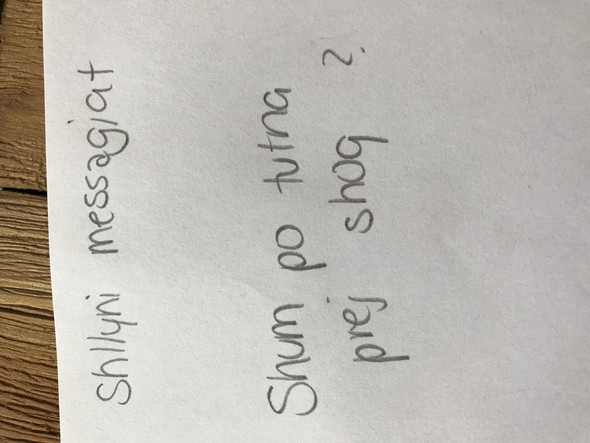 Shllyni messagiat
Shum po tutna
prej shoq ?